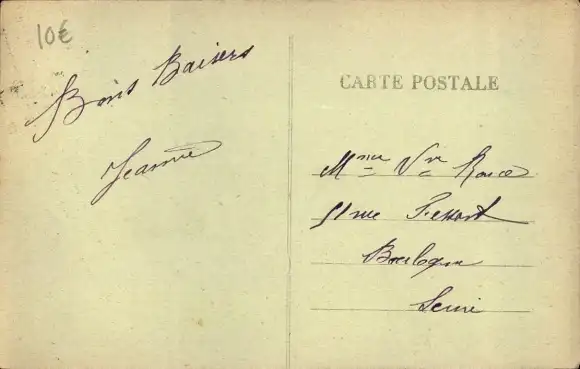 10€
Bons Baisers
Jeanne
CARTE POSTALE
Mme Vve
51 rue Fessart
Boulogne
Seine